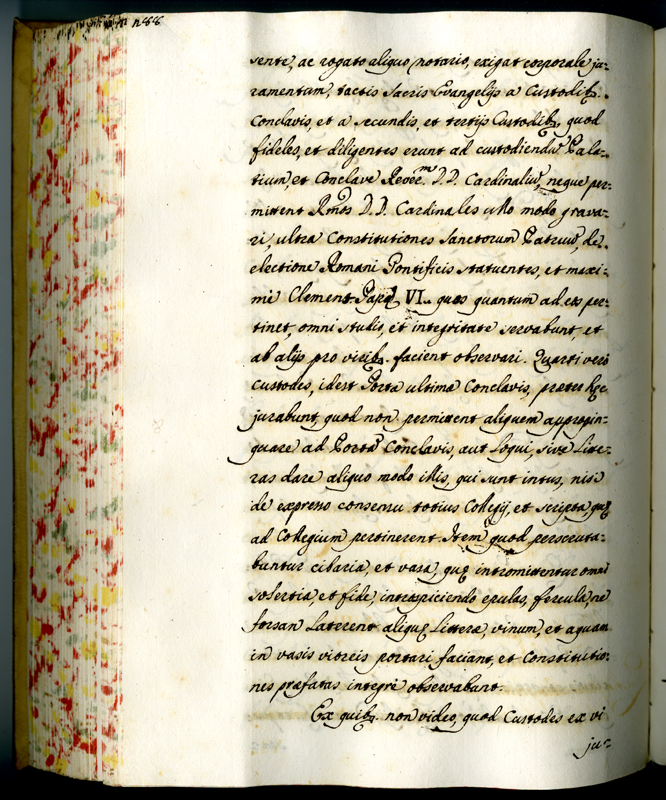 sente, ac rogato aliquo notario, exigat corporale ju=
ramentum, tactis sacris Evangelijs a Custodib9.
Conclavis, et a secundis, et tertijs Custodib9. quod
fideles, et diligentes erunt ad custodiendũ Pala=
tium, et Conclave Reve.m D.D. Cardinaliũ, neque per=
mittent Rmõs D.D. Cardinales ullo modo grava=
ri, ultra Constitutiones Sanctorum Patruũ, de
electione Romani Pontificis statuentes, et maxi=
mè Clement. Papę VI. quas quantum ad eos per=
tinet, omni studio, et integritate servabunt, et
ab alijs pro virib9. facient observari. Quarti verò
Custodes, idest Porta ultima Conclavis, præter hęc
jurabunt, quod non permittent aliquem appropin=
quare ad Portã Conclavis, aut loqui, sive litte=
ras dare aliquo modo illis, qui sunt intus, nisi
de expresso consensu totius Collegij, et scripta, quę
ad Collegium pertinerent. Item quod perscruta=
buntur cibaria, et vasa, quę intromittentur omni
solertia, et fide, introspiciendo epulas, fercula, ne
forsan laterent aliquę Litteræ, vinum, et aquam
in vasis vitreis portari faciant, et Constitutio=
nes præfatas integrè observabunt.
Ex quib9. non video, quod Custodes ex vi
ju=